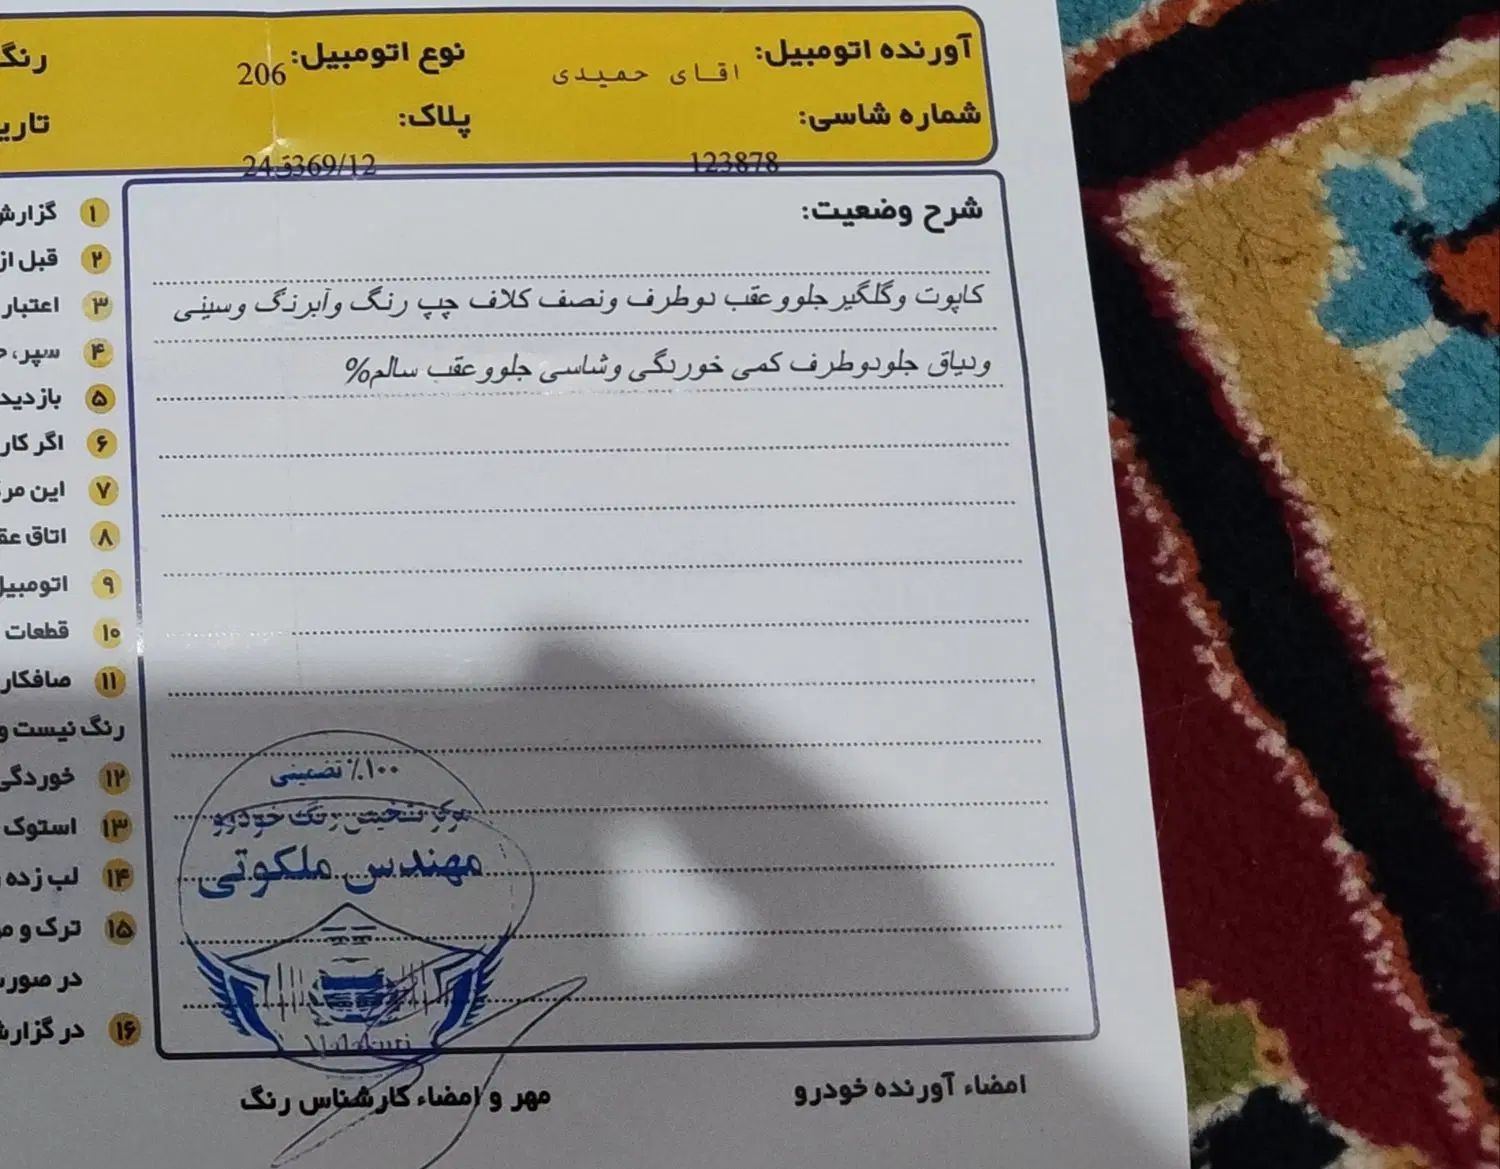 آورنده اتومبیل: اقای حمیدی نوع اتومبیل: 206 رنگ
شماره شاسی: 123878 پلاک: 24ق369/12
شرح وضعیت:
کاپوت وگلگیرجلووعقب دوطرف ونصف کلاف چپ رنگ وآبرنگ وسینی
ودیاق جلودوطرف کمی خوردگی وشاسی جلووعقب سالم%
۱ گزارش
۲ قبل از
۳ اعتبار
۴ سپر،
۵ بازدید
۶ اگر کار
۷ این
۸ اتاق
۹ اتومبیل
۱۰ قطعات
۱۱ صافکار
رنگ نیست و
۱۲ خوردگی
۱۳ استوک
۱۴ لب زده
۱۵ ترک و
در
۱۶ در گزارش
۱۰۰٪ تضمینی
مرکز تشخیص رنگ خودرو
مهندس ملکوتی
امضاء آورنده خودرو
مهر و امضاء کارشناس رنگ